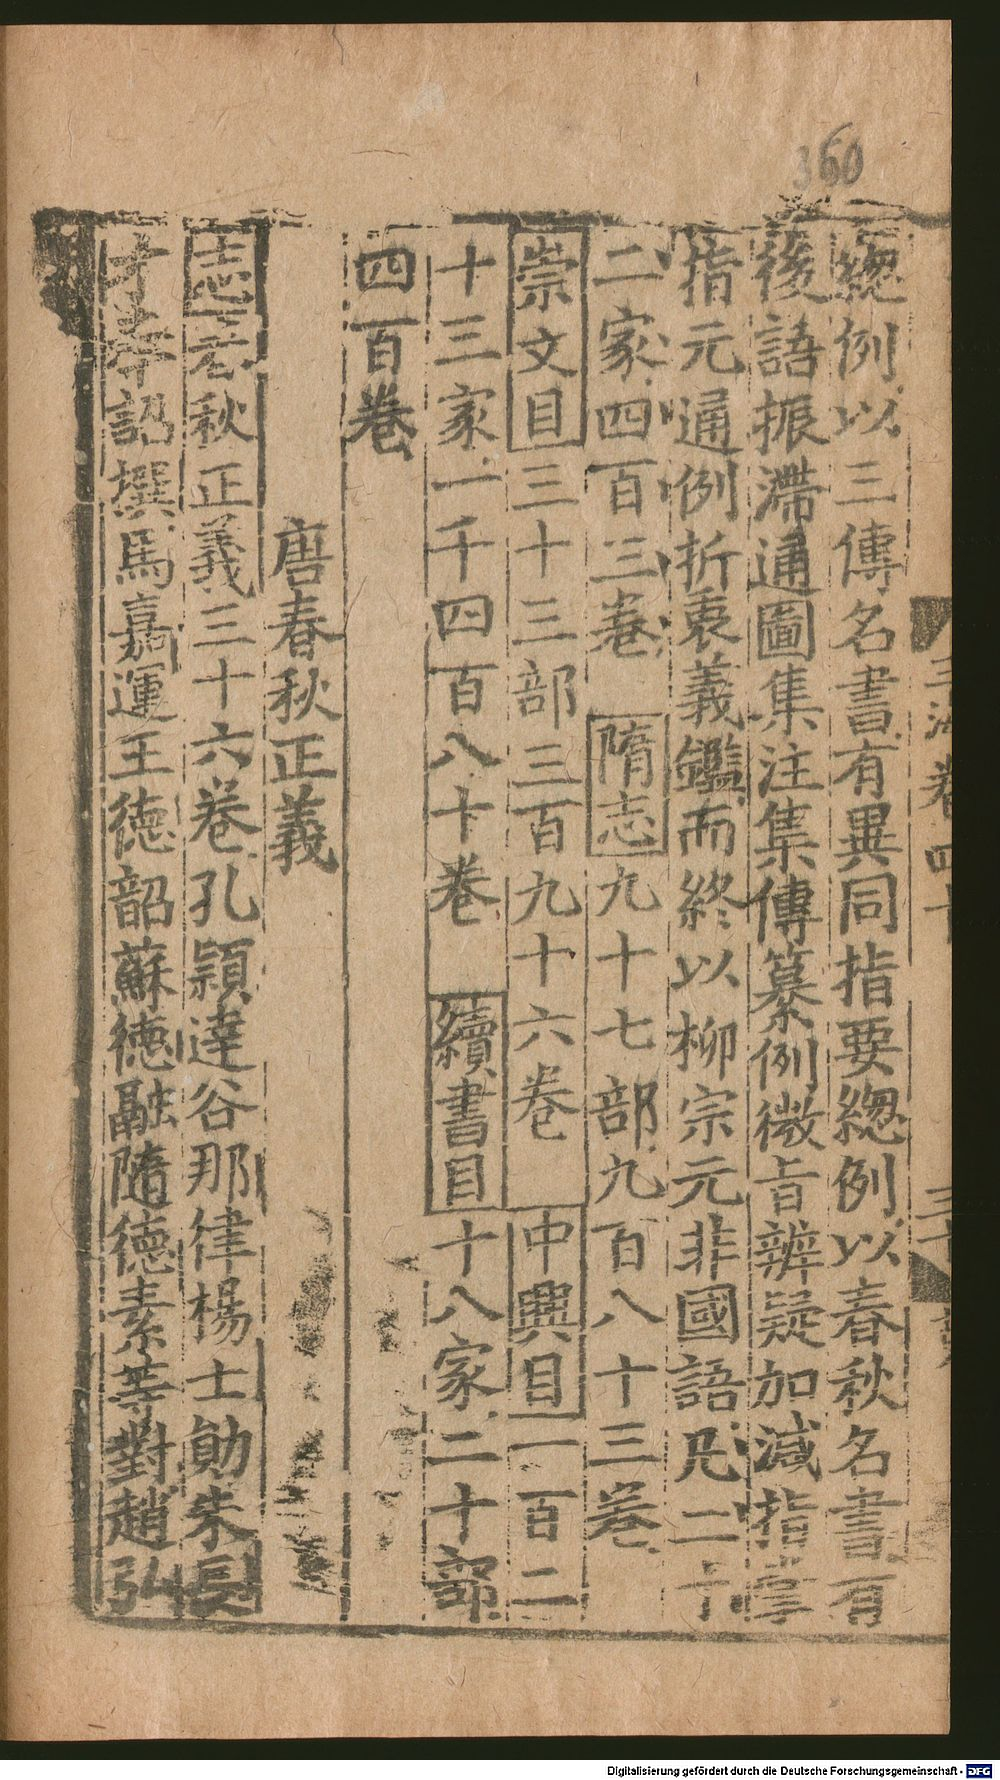 360
緫例以三傳名書有異同指要緫例以春秋名書有
後語振滯通圖集注集傳纂例微旨辨疑加減指掌
指元通例折衷義鑑而終以柳宗元非國語凡二十
二家四百三卷 隋志九十七部九百八十三卷
崇文目三十三部三百九十六卷 中興目一百二
十三家一千四百八十卷 續書目十八家二十部
四百卷
唐春秋正義
志春秋正義三十六卷孔頴達谷那律楊士勛朱長
才奉詔撰馬嘉運王德韶蘇德融隨德素等對趙弘
玉海卷四十
Digitalisierung gefördert durch die Deutsche Forschungsgemeinschaft - DFG